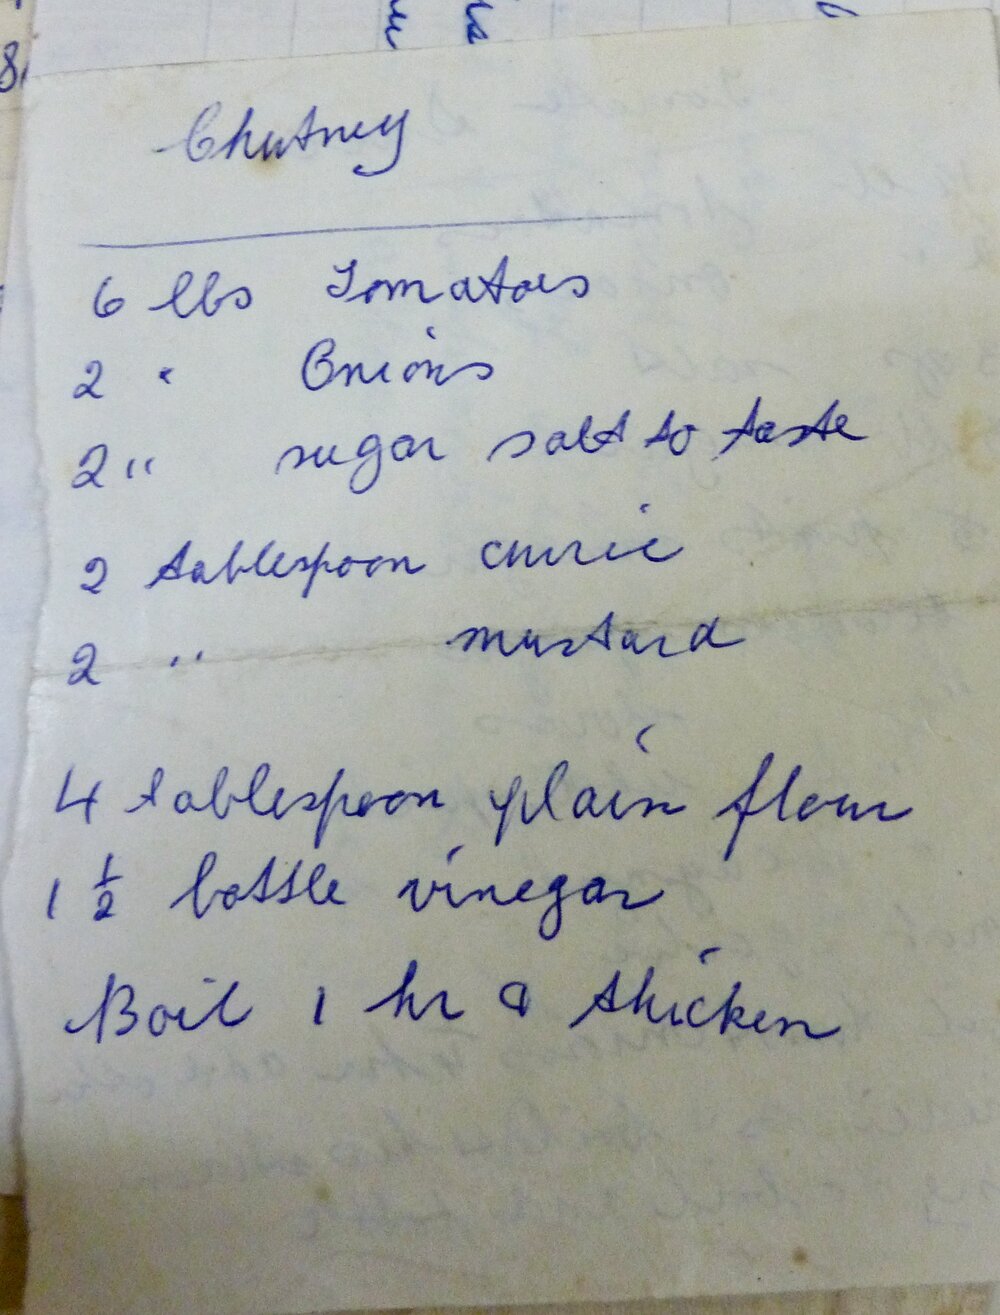 Chutney
6 lbs Tomatoes
2 " Onions
2 " sugar salt to taste
2 tablespoon currie
2 " mustard
4 tablespoon plain flour
1 1/2 bottle vinegar
Boil 1 hr & thicken